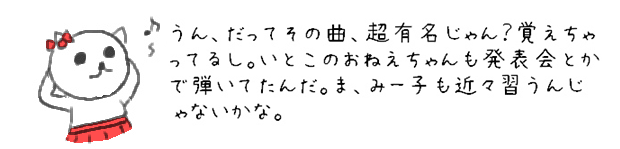 うん、だってその曲、超有名じゃん?覚えちゃ
ってるし。いとこのおねえちゃんも発表会とか
で弾いてたんだ。ま、みー子も近々習うんじ
ゃないかな。